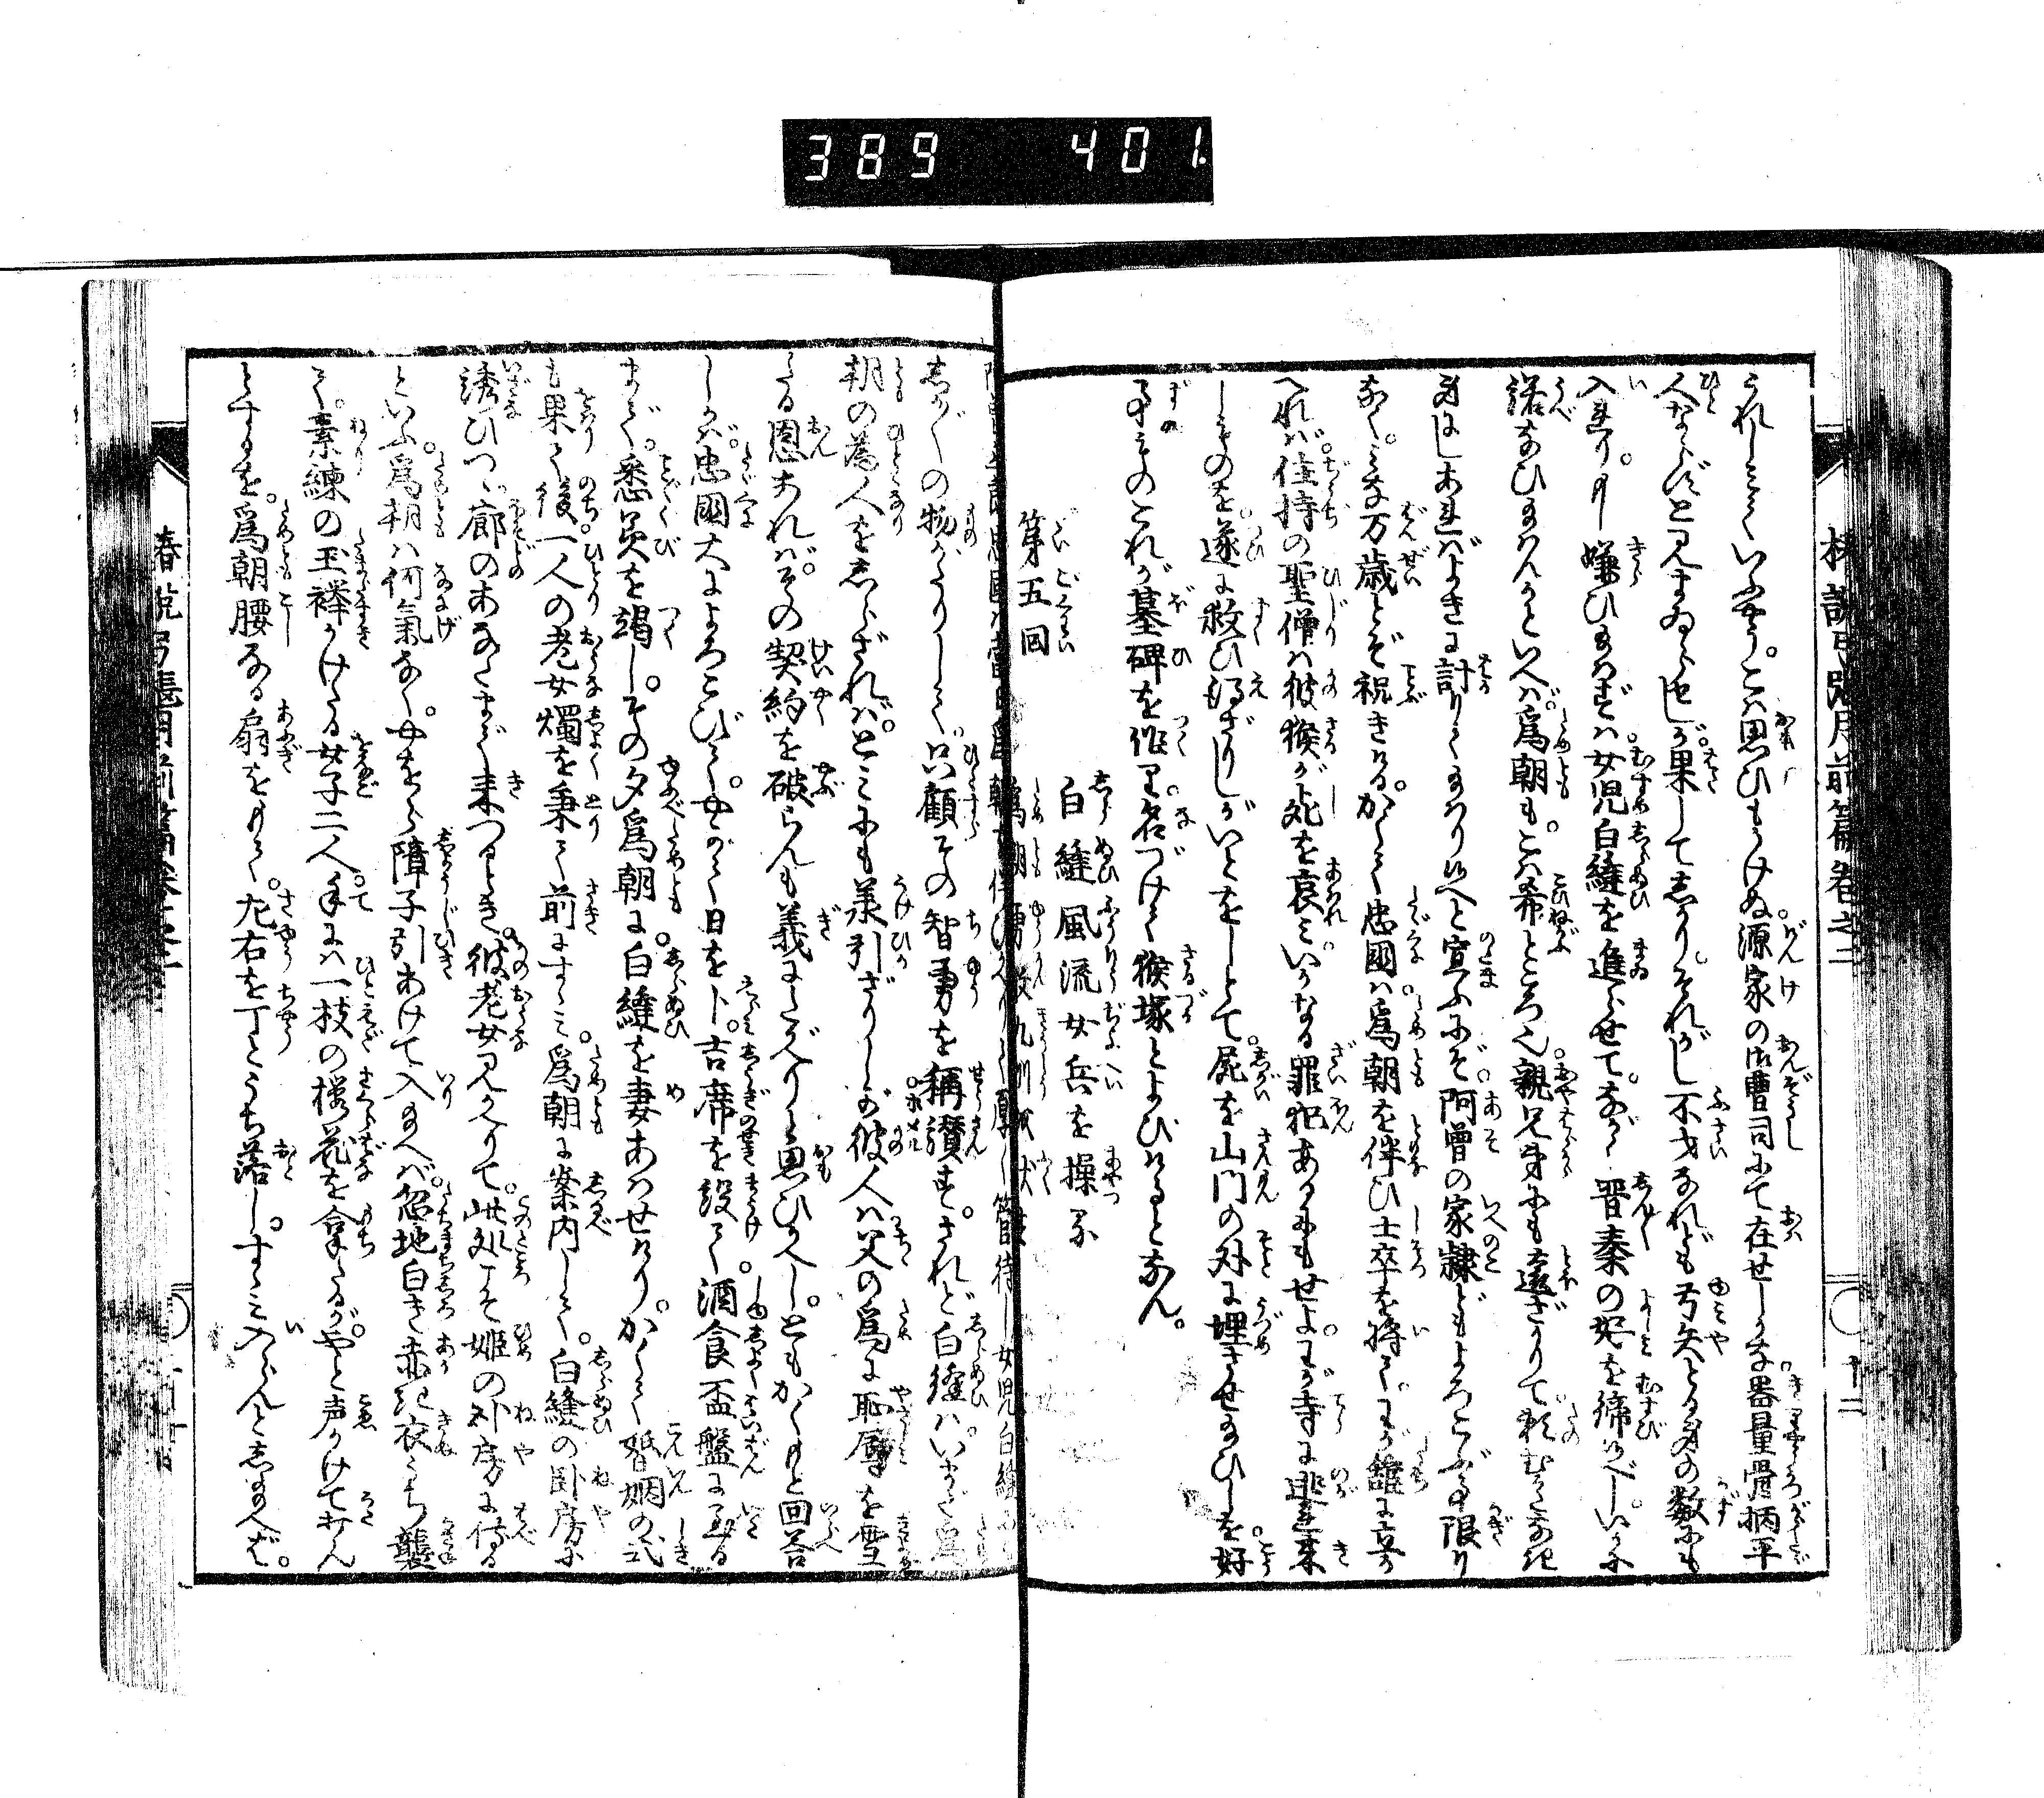 389 401
椿説弓張月前篇巻之二
うれしくていふやう。こは思ひもかけぬ。源家の御曹司にて在せしかな。器量骨柄平
人ならずと見まゐらせしが。果してしかり。それがし不才なれども弓矢とる身の数にも
入れり。もし嫌ひ給はずは。女児白縫を進らせて。ながく晋秦の好を締ぶべし。いかに
諾なひ給はんかといへば。為朝も。こは希ところ也。親兄弟にも遠ざかりて。頼むかたなき
身にしあれば。よきに計り給はり候へと宣ふにぞ。阿曽の家隷どもよろこぶ事限り
なく。みな万歳とぞ祝きける。かくて忠國は。為朝を伴ひ士卒を将て。わが館に立か
へれば。住持の聖僧は彼猴が死を哀み。いかなる罪犯あるにもせよ。わが寺に逃来
しものを。遂に救ひ得ざりしがいとをしとて。屍を山門の外に埋させ給ひしを。好
事のものこれが墓碑を作り。名づけて猴塚とよびけるとなん。
第五回
白縫風流女兵を操る
しか〴〵の物がたりして。只顧その智勇を稱讃す。されど白縫は。いまだ為
朝の為人をしらざれば。とみにも羕引ざりしが。彼人は父の為に恥辱を雪
たる恩あれば。その契約を破らんも義にたがへりと思ひかへし。ともかくもと回答
しかば。忠國大によろこびて。やがて日を卜。吉席を設て。酒食盃盤に至る
まで。悉美を竭し。その夕為朝に。白縫を妻あはせけり。かくて婚姻の式
も果て後。一人の老女燭を秉て前にすゝみ。為朝に案内して。白縫の臥房に
誘ひつゝ。廊のあなたまで来つるとき。彼老女見かへりて。此処こそ姫の卧房に侍る
といふ。為朝は何氣なく。やをら障子引あけて入給へば。忽地白き赤き衣うち襲
て。素練の玉襷かけたる女子二人。手には一枝の桜花を拿たるが。やと声かけて打ん
とするを。為朝腰なる扇をもて。左右を丁とうち落し。すゝみ入らんとし給へば。